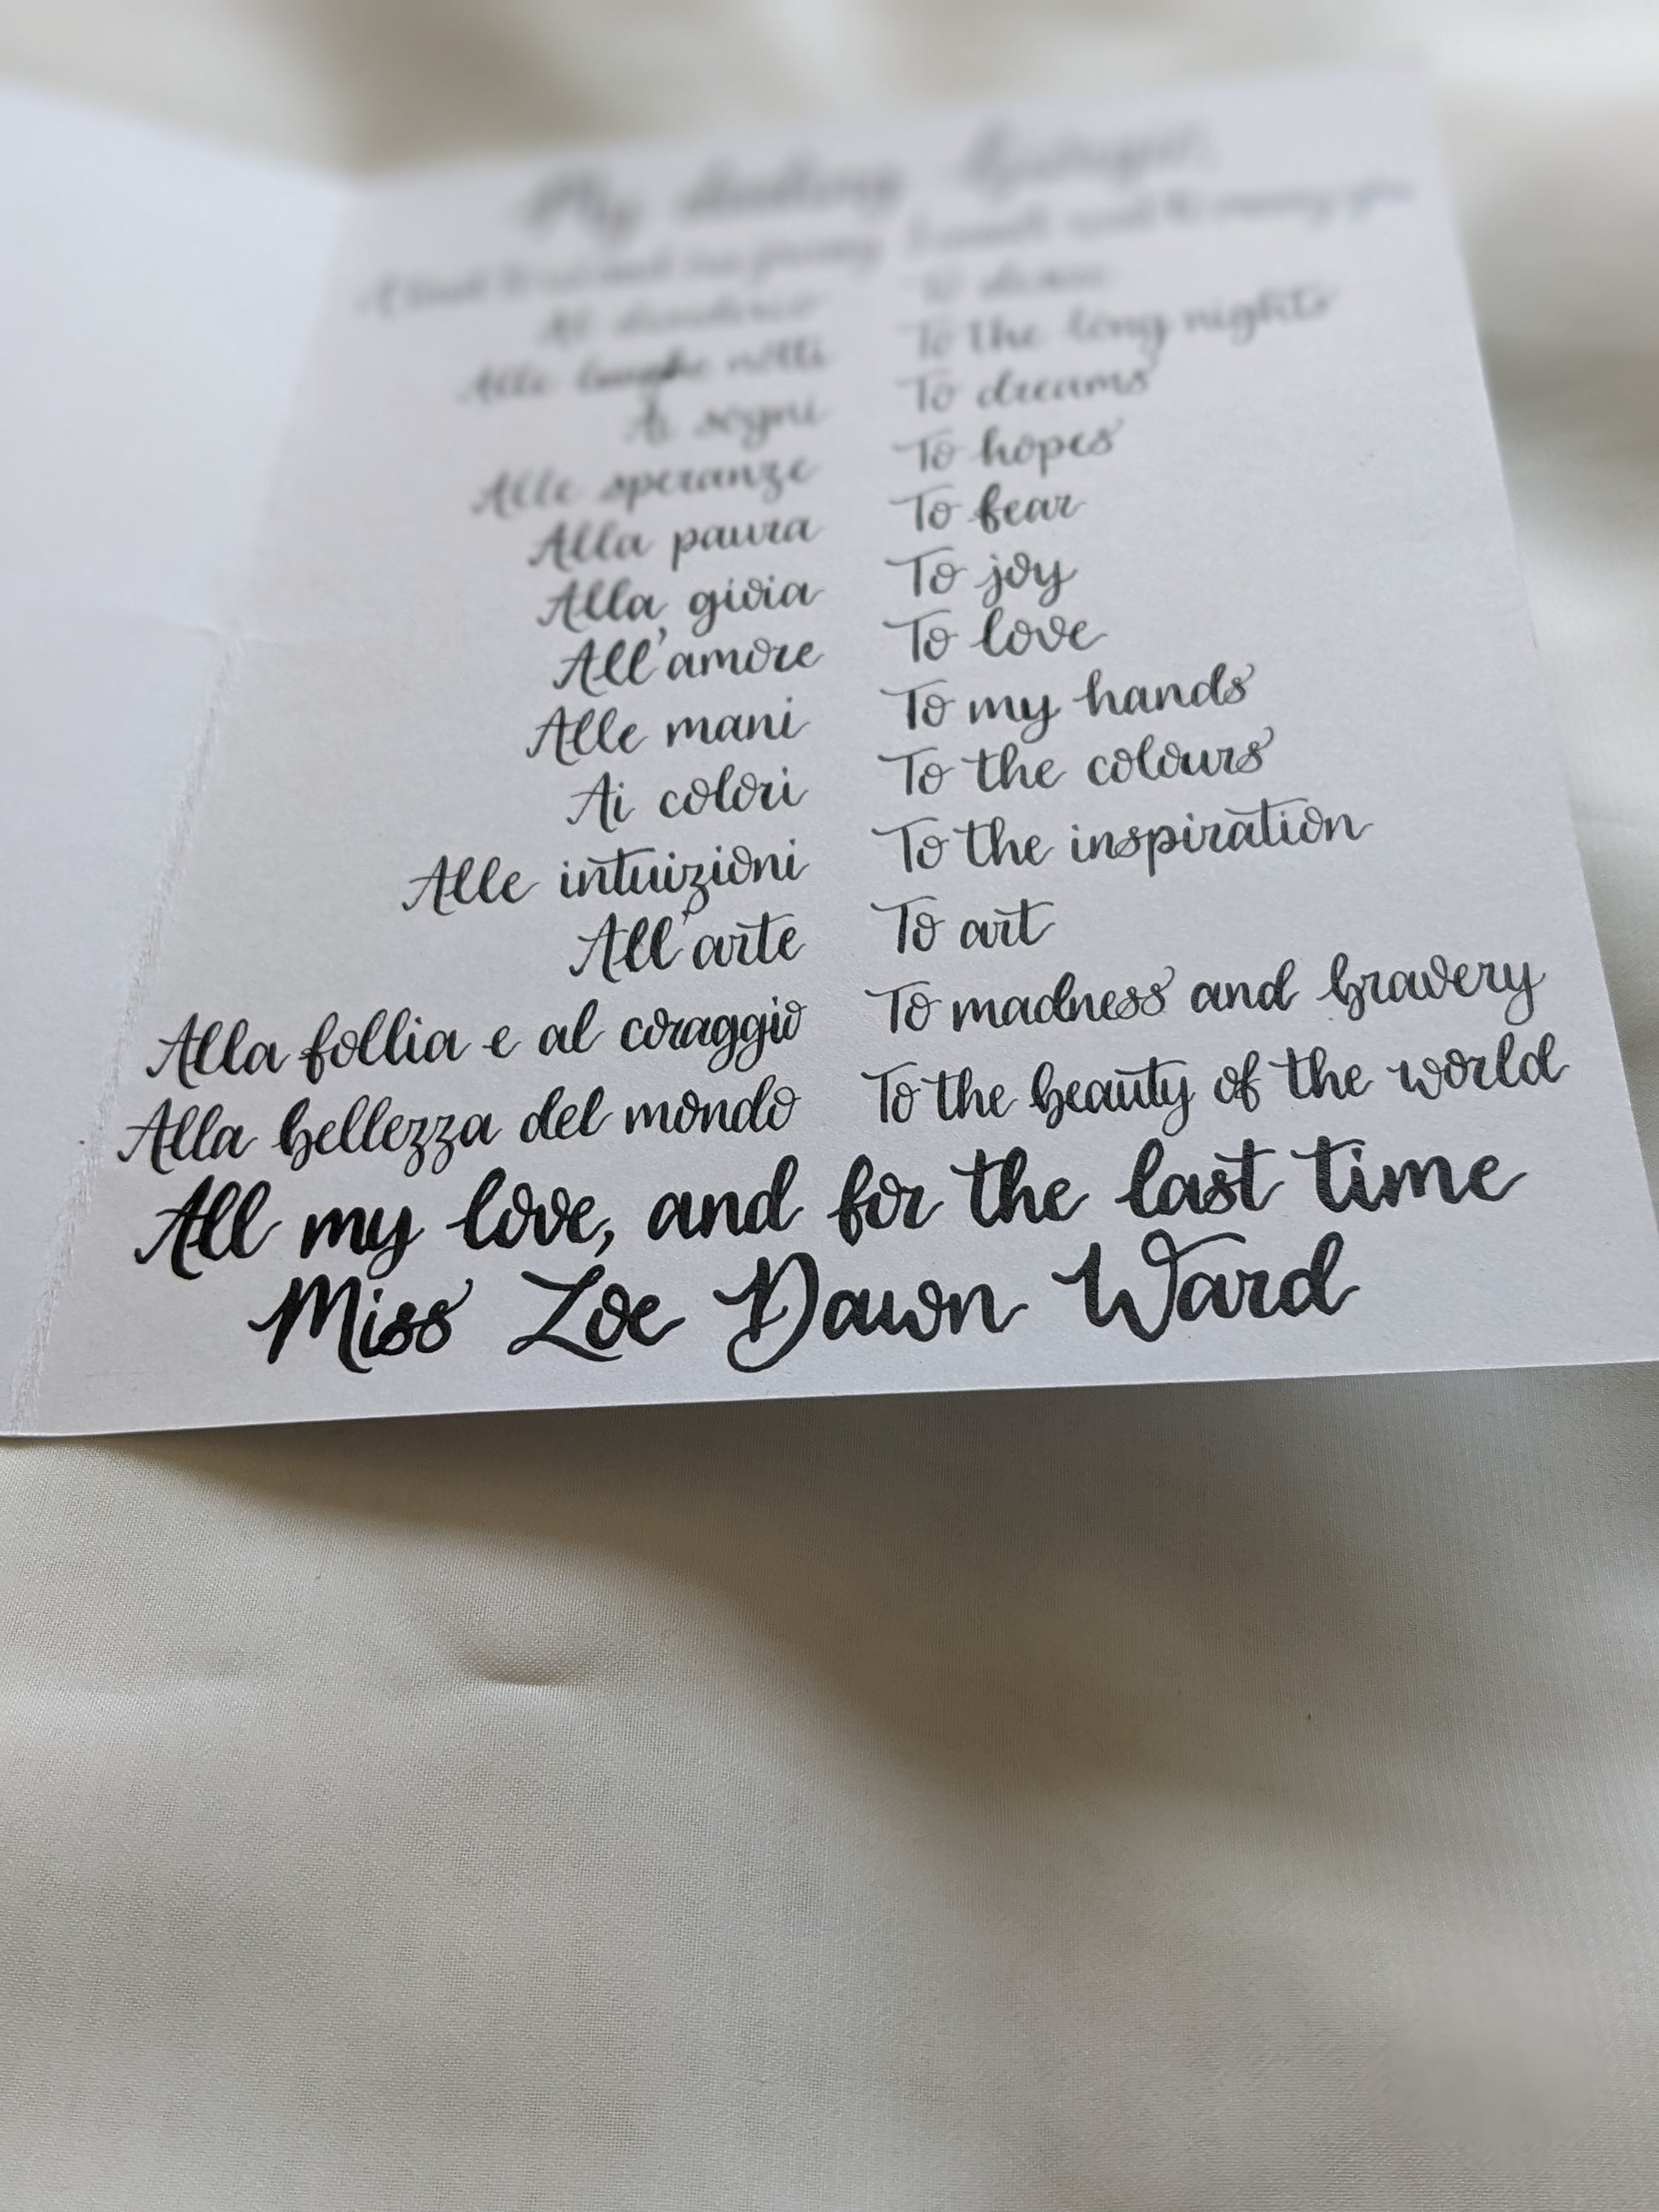 My darling
To the long nights
Alle lunghe notti
Ai sogni To dreams
Alle speranze To hopes
Alla paura To fear
Alla gioia To joy
All'amore To love
Alle mani To my hands
Ai colori To the colours
Alle intuizioni To the inspiration
All'arte To art
Alla follia e al coraggio To madness and bravery
Alla bellezza del mondo To the beauty of the world
All my love, and for the last time
Miss Zoe Dawn Ward